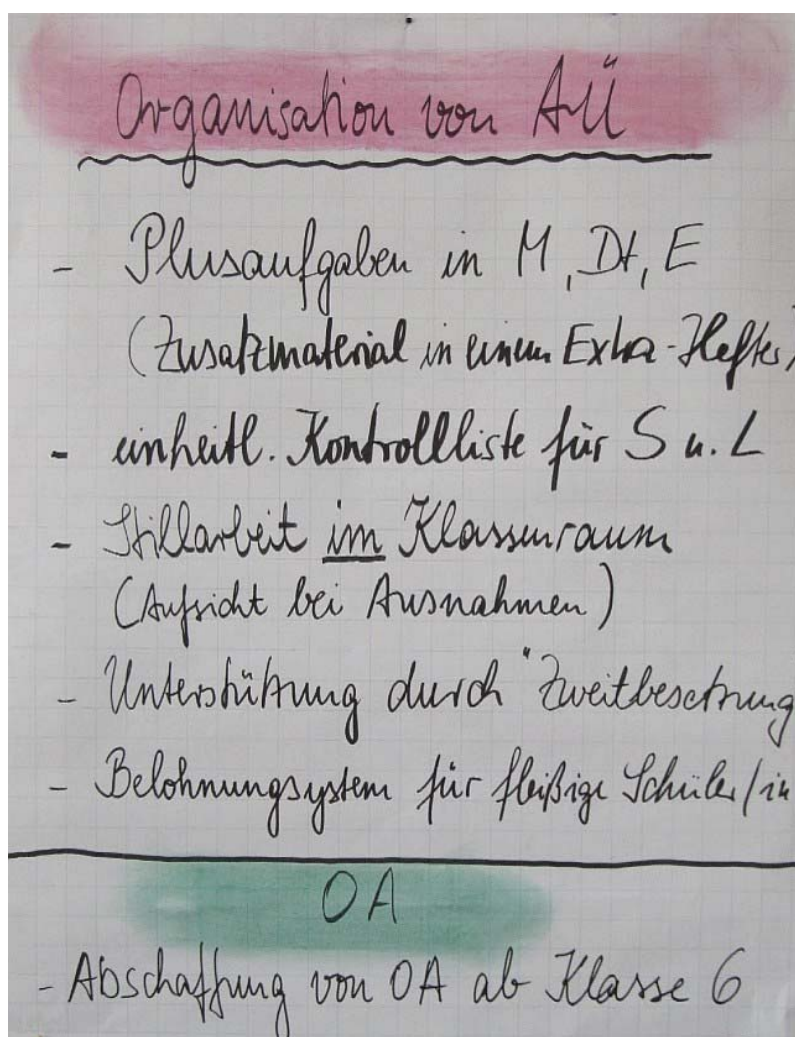 Organisation von AÜ
- Plusaufgaben in M, Dt, E
(Zusatzmaterial in einem Extra-Hefter)
- einheitl. Kontrollliste für S u. L
- Stillarbeit im Klassenraum
(Aufsicht bei Ausnahmen)
- Unterstützung durch "Zweitbesetzung
- Belohnungsystem für fleißige Schüler/in
OA
- Abschaffung von OA ab Klasse 6